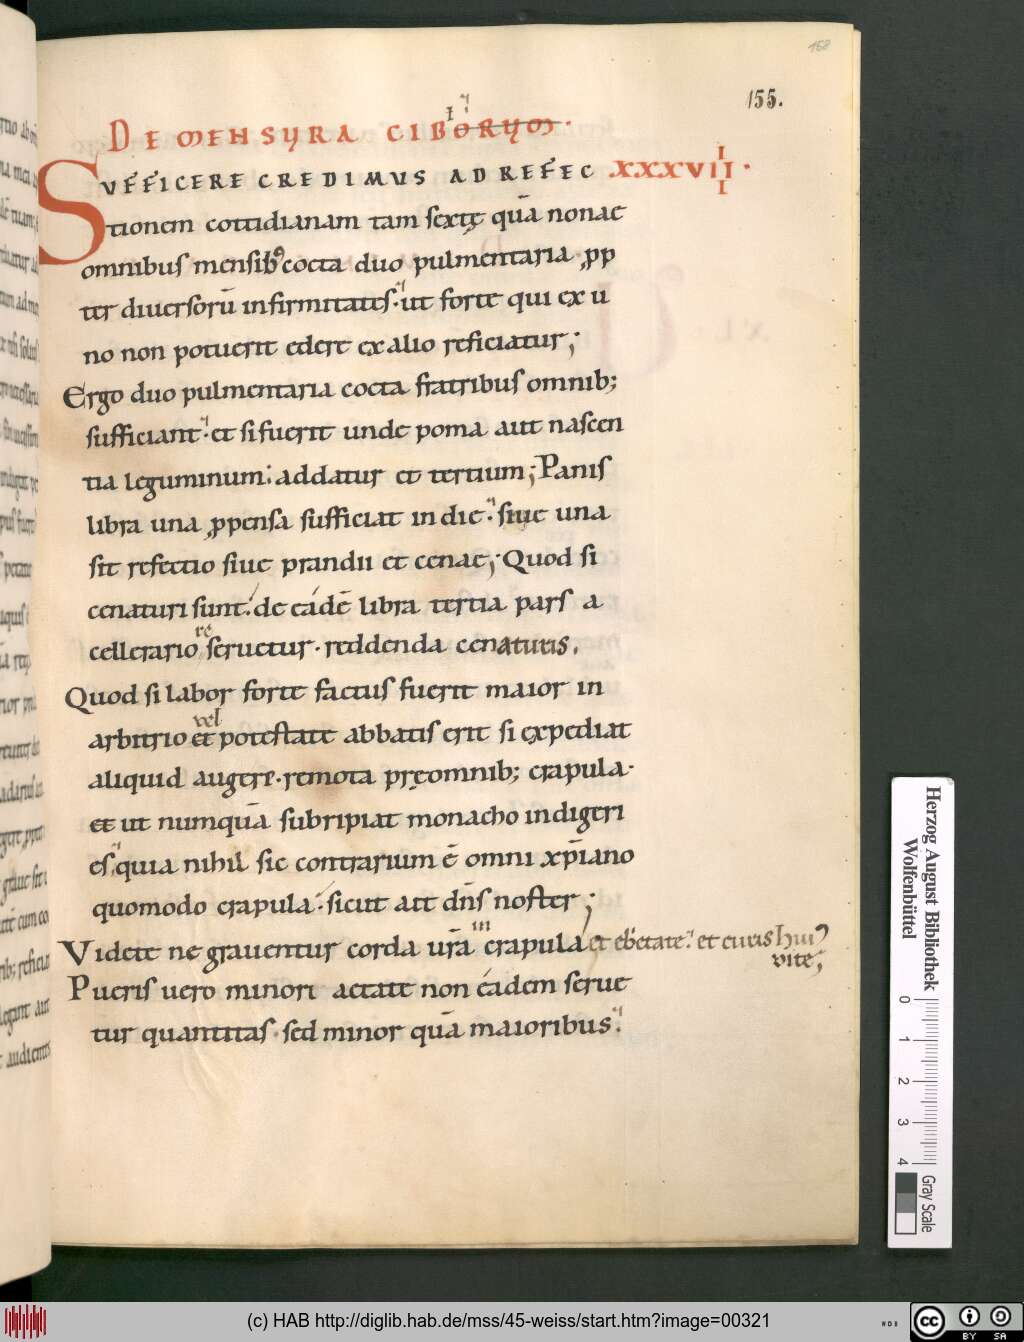 158
155.
DE MENSURA CIBORUM.
SUFFICERE CREDIMUS AD REFEC XXXVIII.
tionem cottidianam tam sextę quā nonae
omnibus mensib; cocta duo pulmentaria, pp
ter diuersorū infirmitates. ut forte qui ex u
no non potuerit edere ex alio reficiatur;
Ergo duo pulmentaria cocta fratribus omnib;
sufficiant. et si fuerit unde poma aut nascen
tia leguminum: addatur et tertium; Panis
libra una ppensa sufficiat in die. siue una
sit refectio siue prandii et cenae; Quod si
cenaturi sunt. de eadē libra tertia pars a
re
cellerario seruetur. reddenda cenaturis.
Quod si labor forte factus fuerit maior in
vel
arbitrio et potestate abbatis erit si expediat
aliquid augere. remota pręomnib; crapula.
et ut numquā subripiat monacho indigeri
es. quia nihil sic contrarium ē omni xp̄iano
quomodo crapula. sicut ait dn̄s noster;
in
Videte ne grauentur corda ur̄a crapula et ebˈetate. et curis hui⁹
vite;
Pueris uero minori aetate non éadem serue
tur quantitas. sed minor quā maioribus.
Herzog August Bibliothek
Wolfenbüttel
0 1 2 3 4
Gray Scale
(c) HAB http://diglib.hab.de/mss/45-weiss/start.htm?image=00321
WDB
cc BY SA